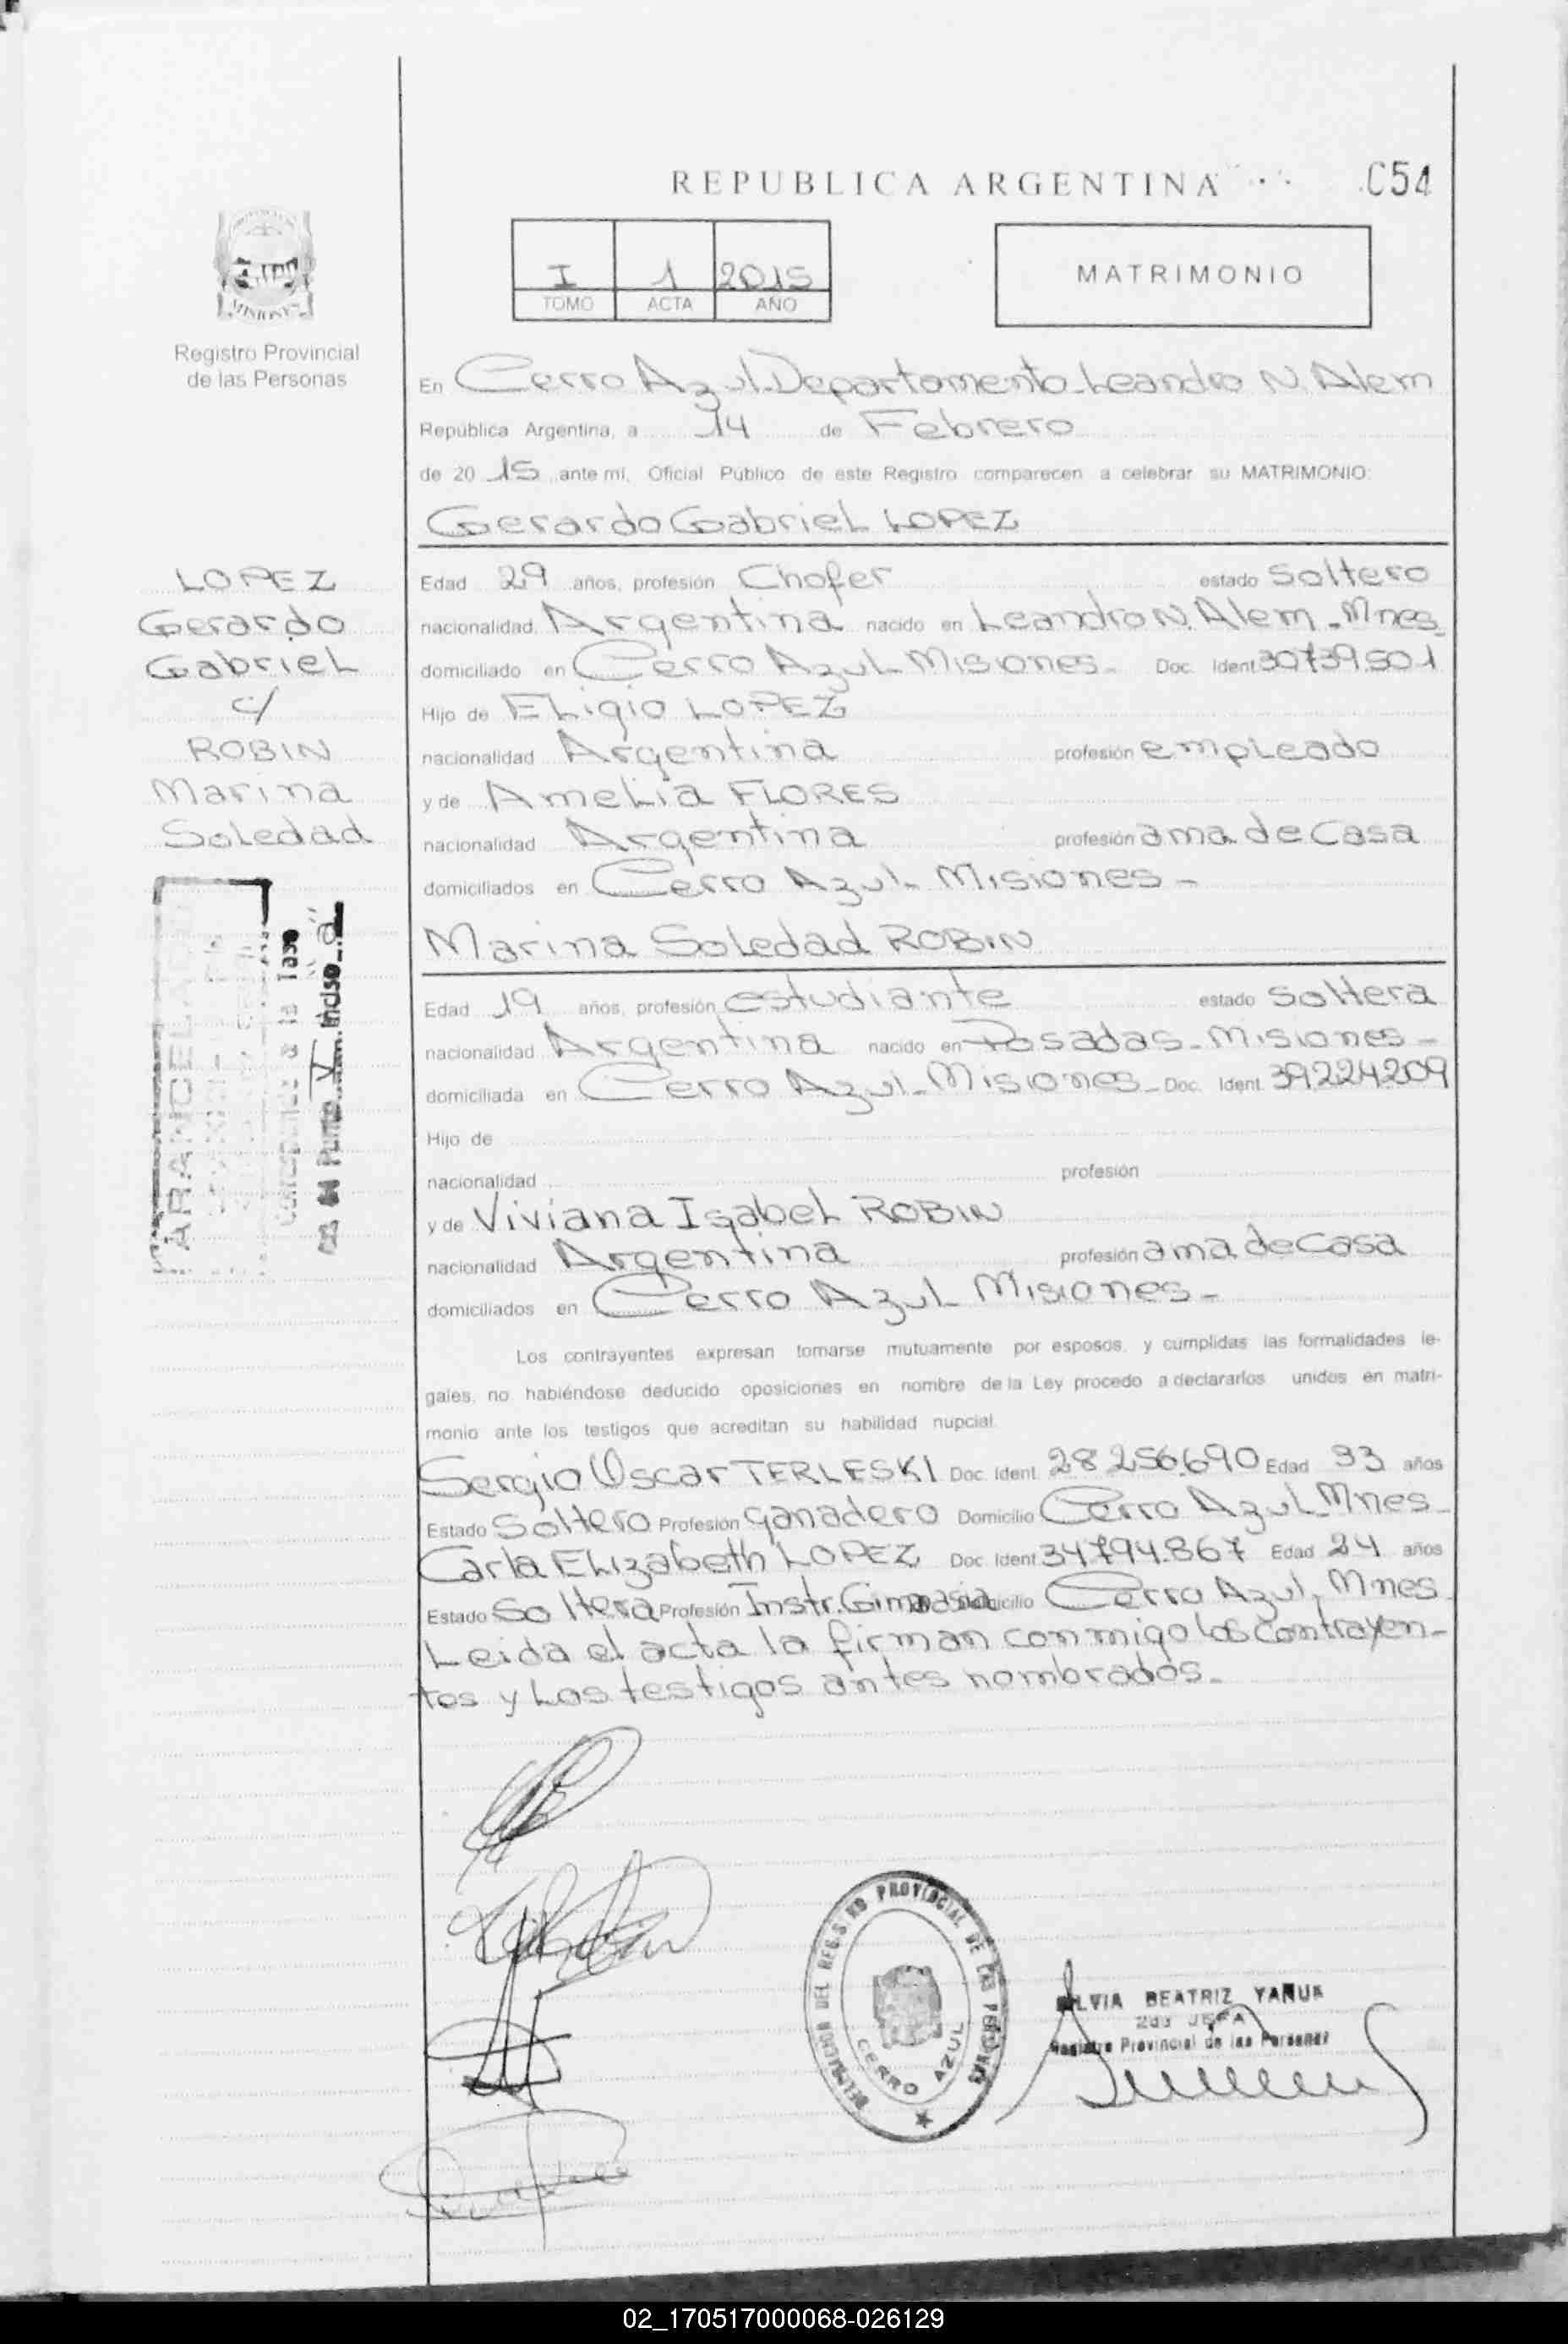 REPUBLICA ARGENTINA
C54
MISIONES
Registro Provincial
de las Personas
I 1 2015
TOMO ACTA AÑO
MATRIMONIO
En Cerro Azul Departamento Leandro N. Alem
República Argentina, a 14 de Febrero
de 20 15 ante mi, Oficial Público de este Registro comparecen a celebrar su MATRIMONIO:
Gerardo Gabriel LOPEZ
LOPEZ
Gerardo
Gabriel
c/
ROBIN
Marina
Soledad
Edad 29 años, profesión Chofer estado Soltero
nacionalidad Argentina nacido en Leandro N. Alem - Mnes
domiciliado en Cerro Azul Misiones - Doc. Ident 30739.501
Hijo de Eligio LOPEZ
nacionalidad Argentina profesión empleado
y de Amelia FLORES
nacionalidad Argentina profesión ama de casa
domiciliados en Cerro Azul Misiones -
ARANCELADO
a la Tasa
Punto V Inciso "a"
Marina Soledad ROBIN
Edad 19 años, profesión estudiante estado Soltera
nacionalidad Argentina nacido en Posadas - Misiones -
domiciliada en Cerro Azul - Misiones - Doc. Ident. 39224209
Hijo de
nacionalidad profesión
y de Viviana Isabel ROBIN
nacionalidad Argentina profesión ama de casa
domiciliados en Cerro Azul Misiones -
Los contrayentes expresan tomarse mutuamente por esposos, y cumplidas las formalidades le-
gales, no habiéndose deducido oposiciones en nombre de la Ley procedo a declararlos unidos en matri-
monio ante los testigos que acreditan su habilidad nupcial.
Sergio Oscar TERLESKI Doc. Ident. 28.256.690 Edad 33 años
Estado Soltero Profesión ganadero Domicilio Cerro Azul Mnes -
Carla Elizabeth LOPEZ Doc. Ident. 34794.867 Edad 24 años
Estado Soltera Profesión Instr. Gimnasia Domicilio Cerro Azul, Mnes
Leida el acta la firman conmigo los contrayen-
tes y los testigos antes nombrados -
DELEGACION DEL REGISTRO PROVINCIAL DE LAS PERSONAS
CERRO AZUL
SILVIA BEATRIZ YARUK
2da JEFA
Registro Provincial de las Personas
02_170517000068-026129